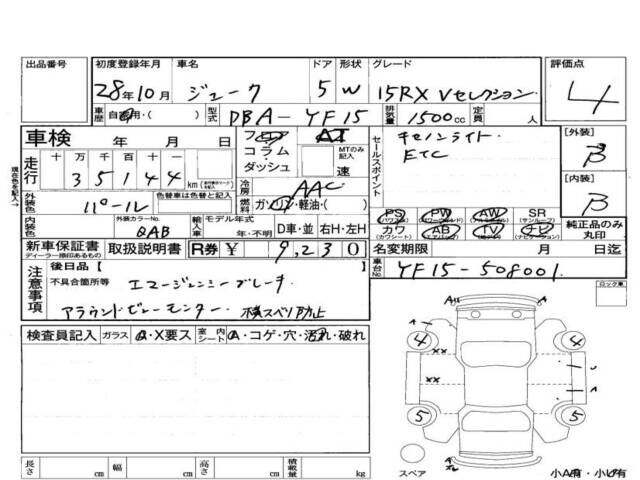 出品番号 初度登録年月 車名 ドア 形状 グレード 評価点
28年10月 ジューク 5 W 15RX Vセレクション 4
車歴 自家用・( ) 型式 DBA-YF15 排気量 1500cc 定員 人
車検 年 月 日 フロア AT キセノンライト [外装]
走行 十 万 千 百 十 一 コラム・ダッシュ MTのみ記入 速 セールスポイント ETC B
35144 km 冷房 AAC [内装]
外装色 パール 色替車は色替と記入 燃料 ガソリン・軽油・( ) B
内装色 外装カラーNo. QAB 輸入車 モデル年式 年・不明 D車・並 右H・左H
PS PW AW SR (サンルーフ) 純正品のみ丸印
カワ (カワシート) AB TV ナビ
新車保証書 ディーラー捺印あるもの 取扱説明書 R券 ¥ 9,230 名変期限 月 日迄
注意事項 後日品【 】 車台No. YF15-508001
不具合箇所等 エマージェンシーブレーキ ロック車
アラウンドビューモニター 横スベリ防止
検査員記入 ガラス A・X要ス 室内シート A・コゲ・穴・汚れ・破れ
A
A
4 4
XX U
XX A
5 5
A
スペア
長さ cm 幅 cm 高さ cm 積載量 kg 小A有・小U有
現在色を記入→